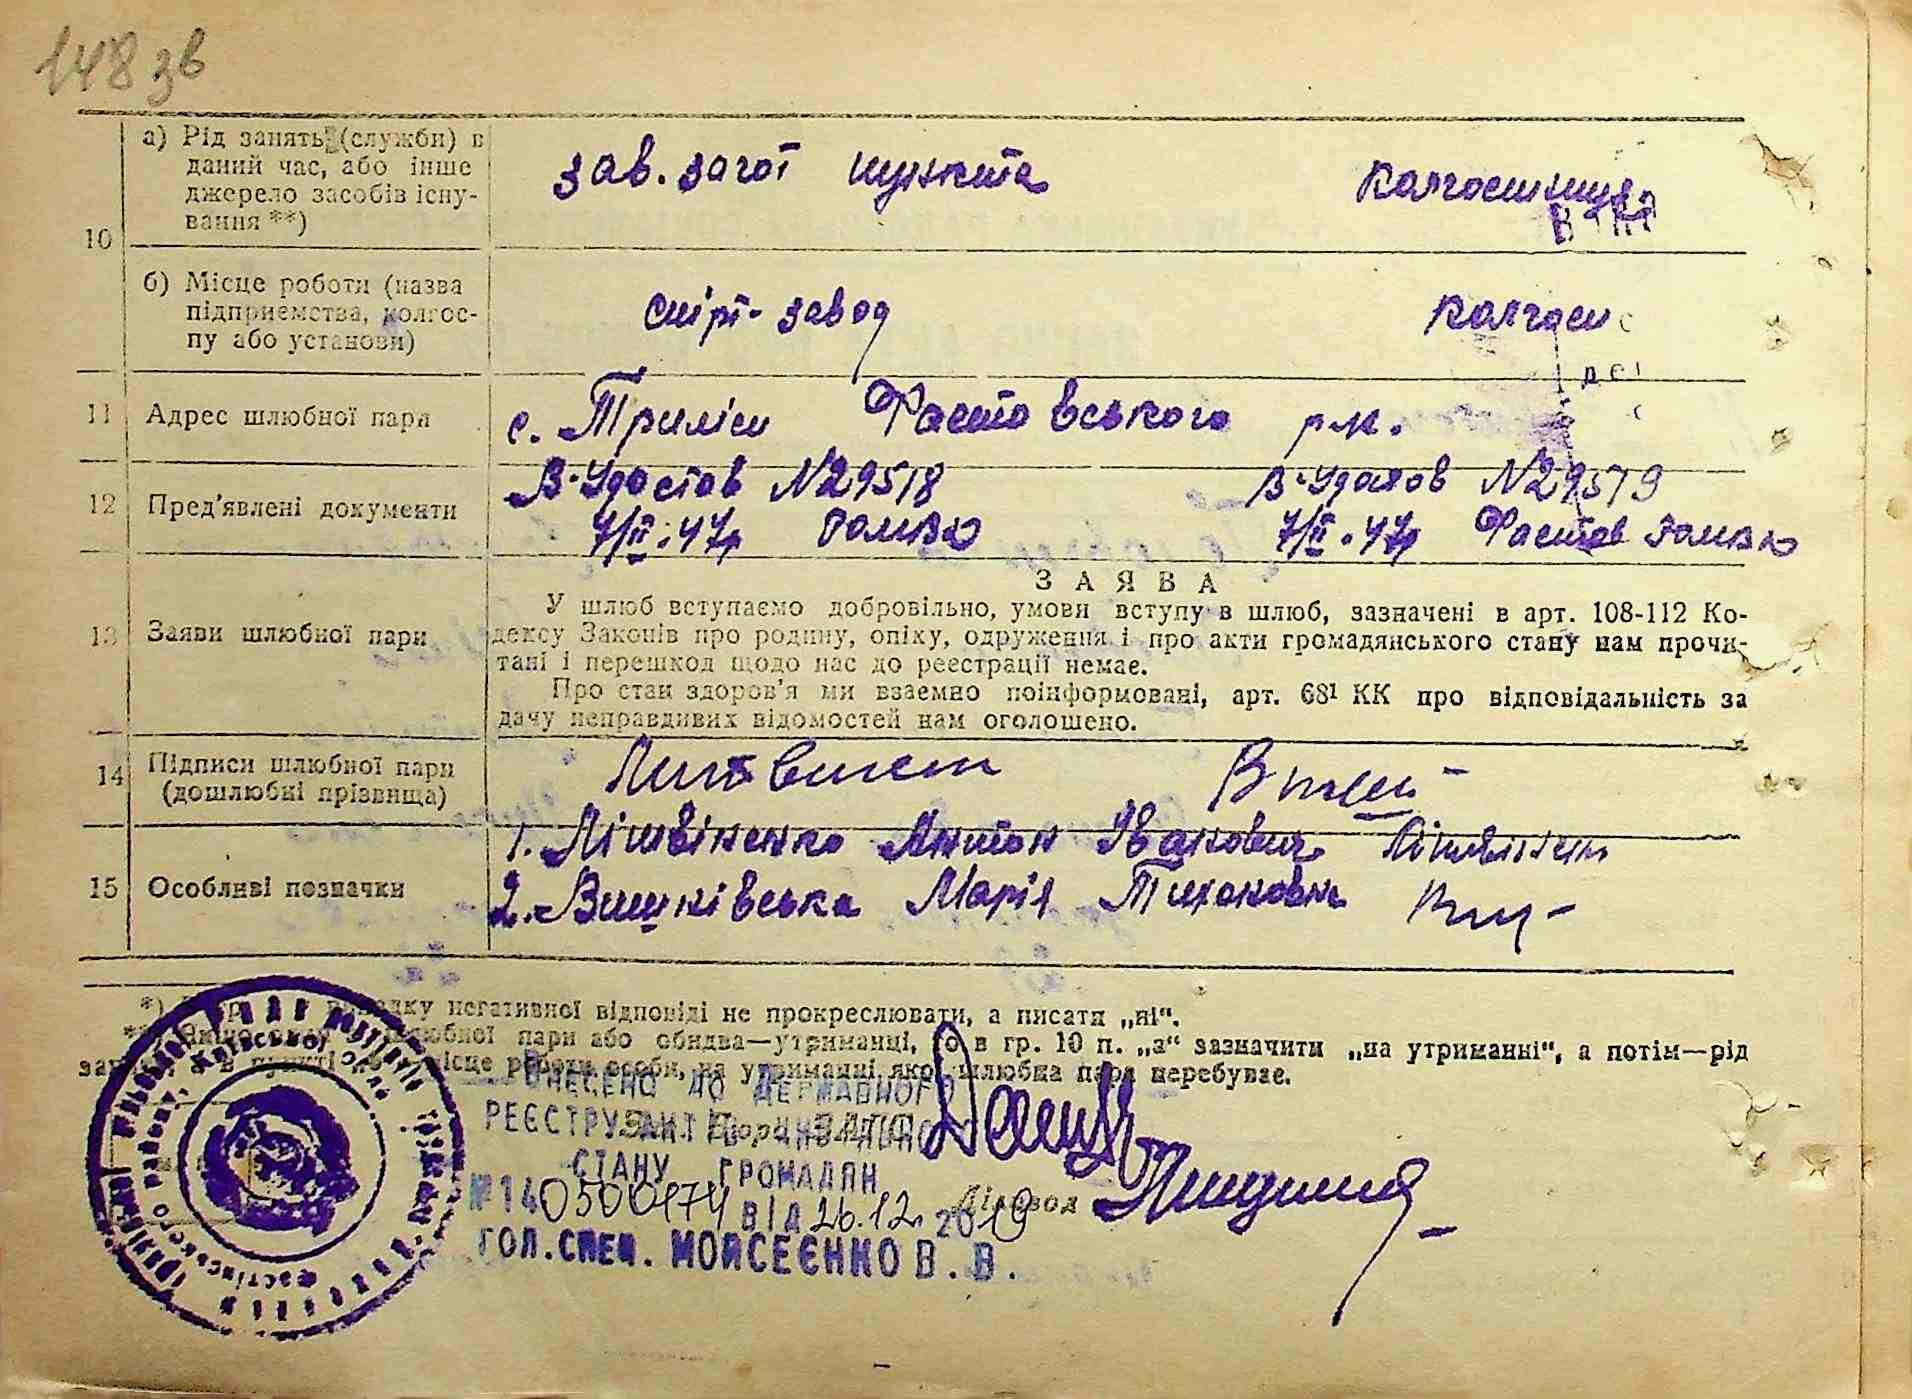 148 зв
а) Рід занять (служби) в
даний час, або інше
джерело засобів існу-
вання **)
зав. загот пункта
колгоспниця
10
б) Місце роботи (назва
підприємства, колгос-
пу або установи)
спірт-завод
колгосп
11 Адрес шлюбної пари
с. Триліси Фастовського р-н.
12 Пред'явлені документи
В-Удостов №29518
7/II.47р
В-Удостов №29519
7/II.47р Фастов
13 Заяви шлюбної пари
ЗАЯВА
У шлюб вступаємо добровільно, умови вступу в шлюб, зазначені в арт. 108-112 Ко-
дексу Законів про родину, опіку, одруження і про акти громадянського стану нам прочи-
тані і перешкод щодо нас до реєстрації немає.
Про стан здоров'я ми взаємно поінформовані, арт. 68¹ КК про відповідальність за
дачу неправдивих відомостей нам оголошено.
14 Підписи шлюбної пари
(дошлюбні прізвища)
15 Особливі позначки
1. Літвіненко Антон Іванович
2. Вишківська Марія Тихоновна
*) у випадку негативної відповіді не прокреслювати, а писати „ні“.
**) Якщо шлюбної пари або обидва—утриманці, то в гр. 10 п. „а“ зазначити „на утриманні“, а потім—рід
занять, а в пункті місце роботи особи, на утриманні якої шлюбна пара перебуває.
ВНЕСЕНО ДО ДЕРЖАВНОГО
РЕЄСТРУ АКТІВ ЦИВІЛЬНОГО
СТАНУ ГРОМАДЯН
№ 140500174 ВІД 26.12 2019
Діловод
ГОЛ.СПЕЦ. МОЙСЕЄНКО В. В.
Київської
району,